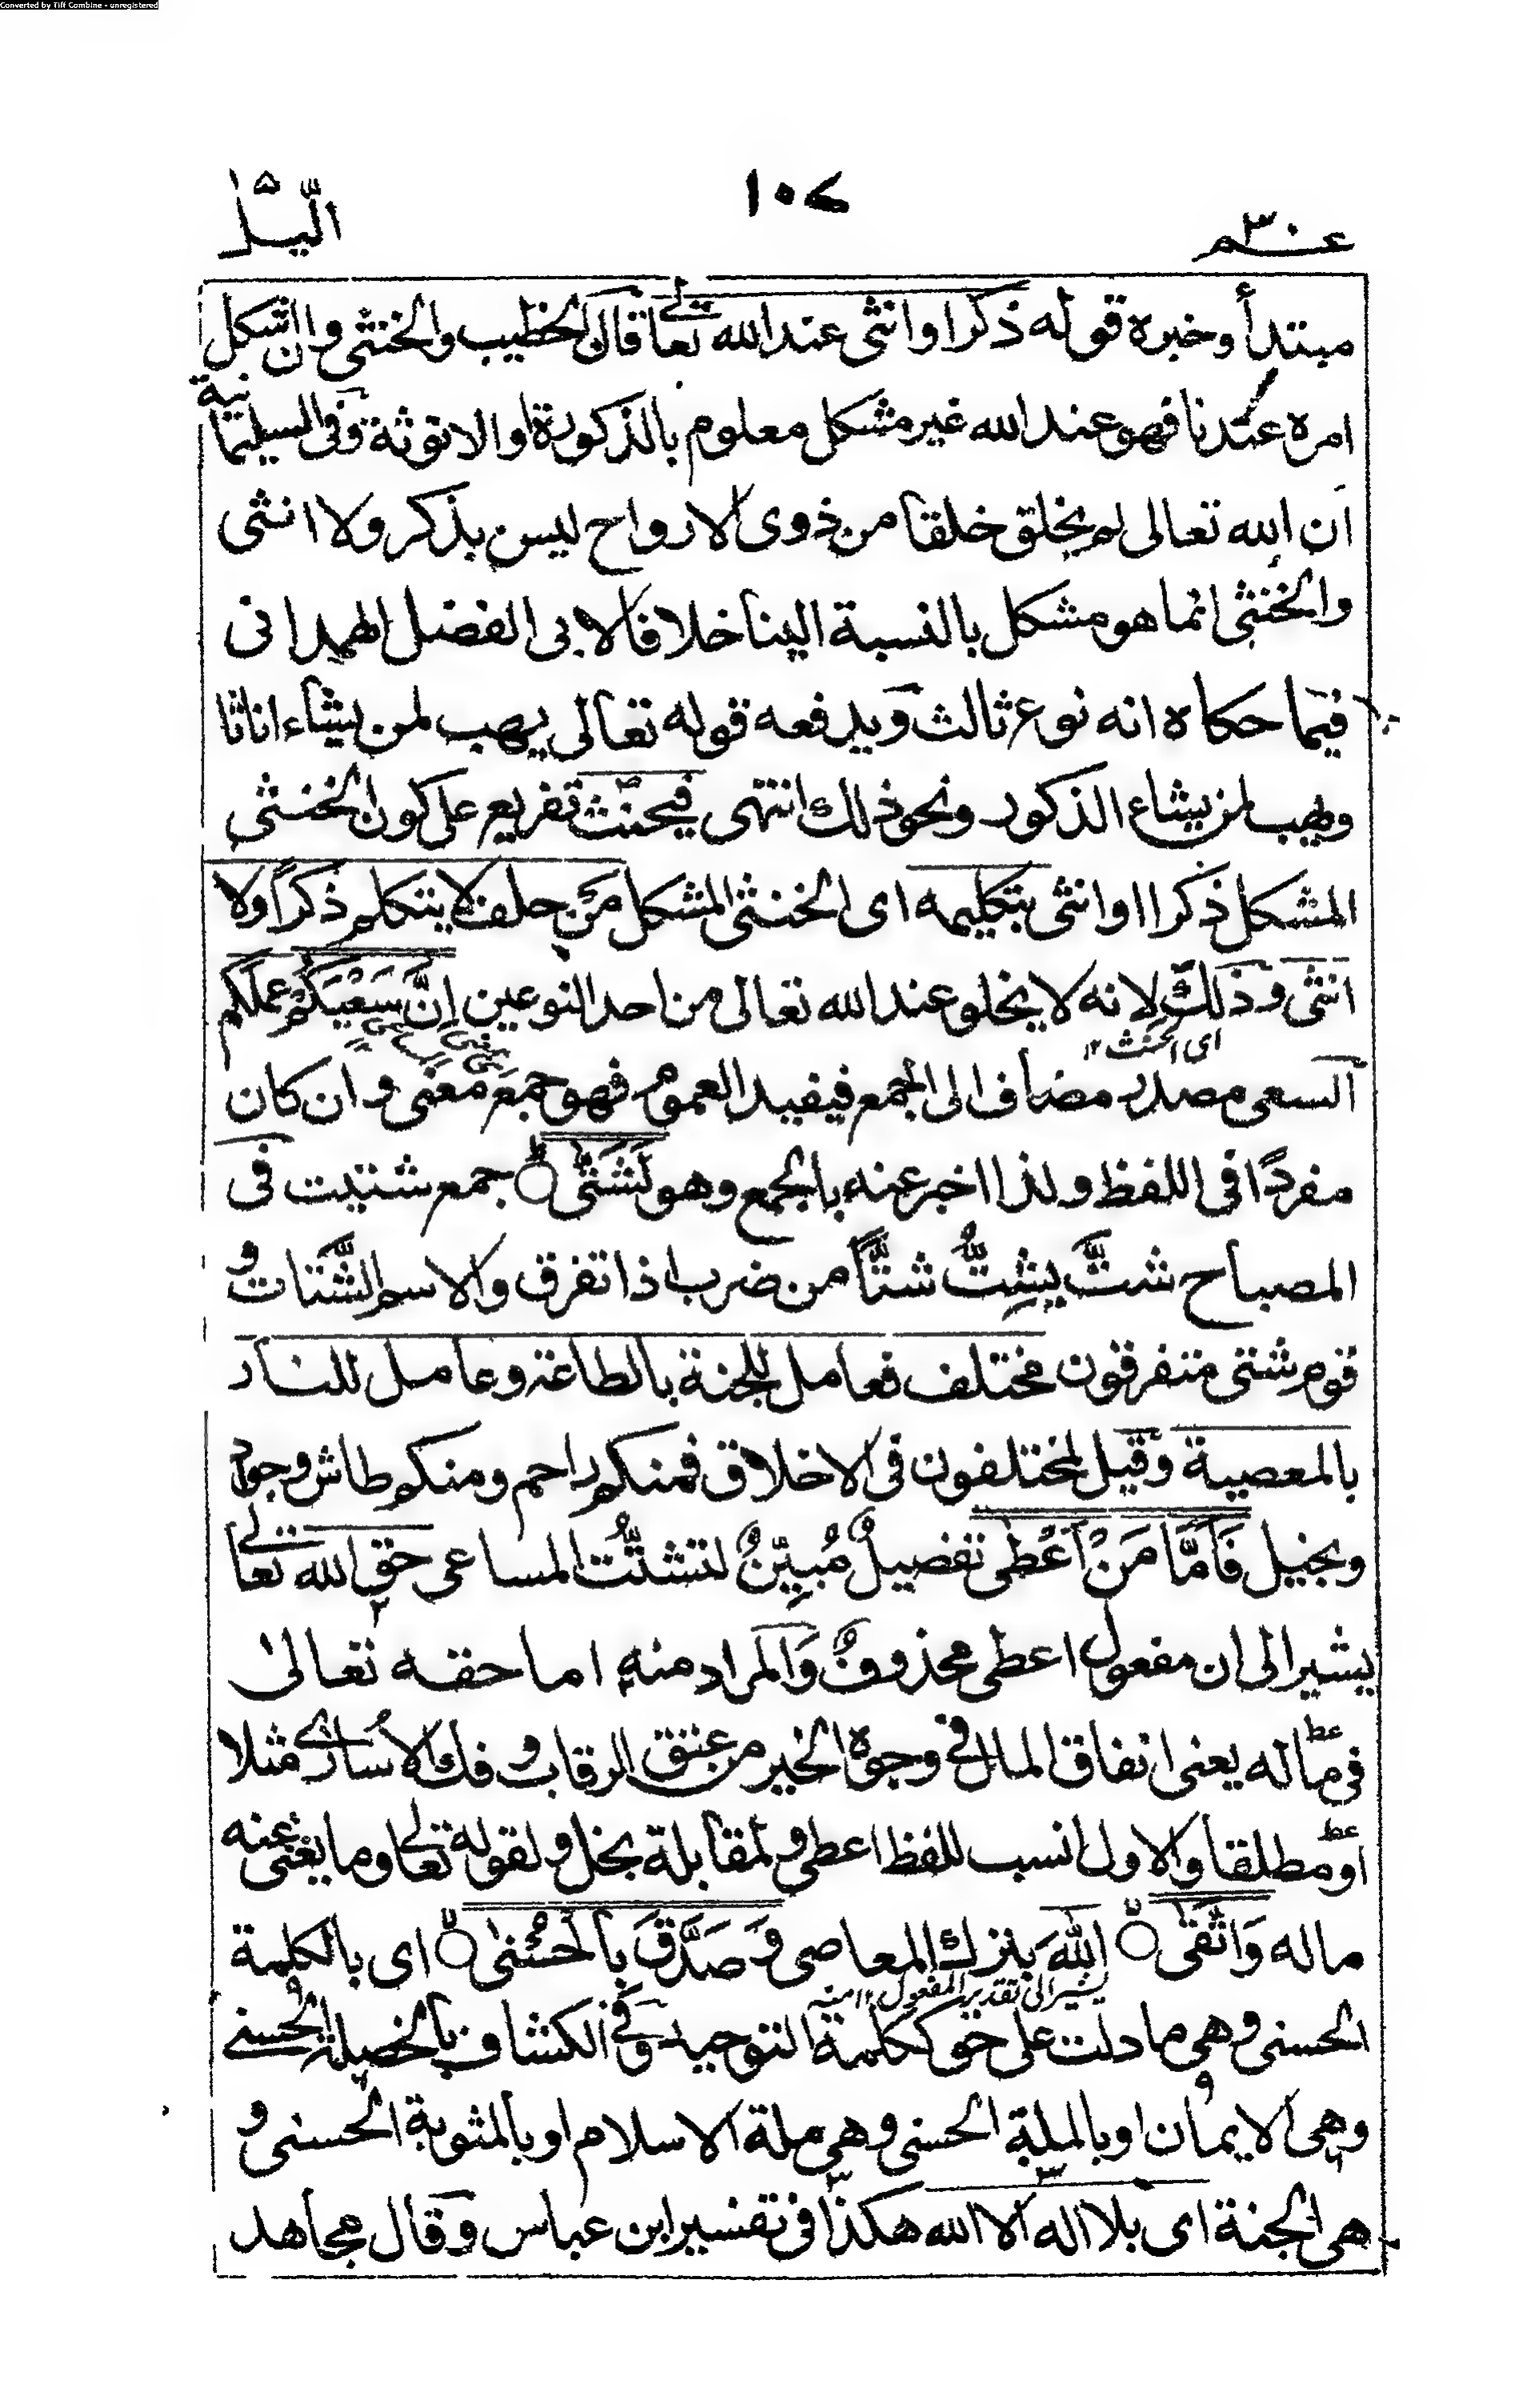 Converted by Tiff Combine - unregistered
عم ٣٠
١٠٧
الّيل
مبتدأ وخبره قوله ذكرا وانثى عند الله تعالى قال الخطيب والخنثى وان اشكل
امره عندنا فهو عند الله غير مشكل معلوم بالذكورة او الانوثة وفى السليمانية
ان الله تعالى لم يخلق خلقا من ذوى الارواح ليس بذكر ولا انثى
والخنثى انما هو مشكل بالنسبة الينا خلافا لابى الفضل الهمدانى
فيما حكاه انه نوع ثالث ويدفعه قوله تعالى يهب لمن يشاء اناثا
ويهب لمن يشاء الذكور ونحو ذلك انتهى فيحنث تفريع على كون الخنثى
المشكل ذكرا اوانثى بتكليمه اى الخنثى المشكل من حلف لا يتكلم ذكراً ولا
انثى وذلك لانه لا يخلو عند الله تعالى من احد النوعين اِنَّ سَعْيَكُمْ عملكم
اى الحنث ١٢
السعى مصدر مضاف الى الجمع فيفيد العموم فهو جمع معنى وان كان
مفردًا فى اللفظ ولذا اخبر عنه بالجمع وهو لَشَتّٰى جمع شتيت فى
المصباح شتَّ يشِتُّ شتًّا من ضرب اذا تفرق والاسم الشَّتات و
قوم شتى متفرقون مختلف فعامل للجنة بالطاعة وعامل للنار
بالمعصية وقيل لمختلفون فى الاخلاق فمنكم راحم ومنكم طاش وجواد
وبخيل فَاَمَّا مَنْ اَعْطٰى تفصيلٌ مُبيِّنٌ لتشتُّت المساعى حق الله تعالى
يشير الى ان مفعول اعطى محذوفٌ والمراد منه اما حقه تعالىٰ
فى ماله يعنى انفاق المال فى وجوه الخير من عتق الرقاب وفك الاُسارى مثلا
او مطلقا والاول انسب للفظ اعطى ولمقابلة بخل ولقوله تعالى وما يغنى عنه
ماله وَاتَّقٰى اللهَ بترك المعاصى وَصَدَّقَ بِالْحُسْنٰى اى بالكلمة
يشير الى تقدير المفعول ١٢ منه
الحسنى وهى ما دلت على حق ككلمة التوحيد وفى الكشاف بالخصلة الحسنى
وهى الايمان او بالملة الحسنى وهى ملة الاسلام او بالمثوبة الحسنى و
هى الجنة اى بلا اله الا الله هكذا فى تفسير ابن عباس وقال مجاهد